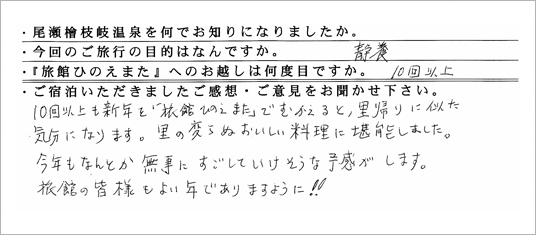 ・尾瀬檜枝岐温泉を何でお知りになりましたか。
・今回のご旅行の目的はなんですか。 静養
・『旅館ひのえまた』へのお越しは何度目ですか。 10回以上
・ご宿泊いただきましたご感想・ご意見をお聞かせ下さい。
10回以上も新年を「旅館ひのえまた」でむかえると、里帰りに似た
気分になります。里の変らぬおいしい料理に堪能しました。
今年もなんとか無事にすごしていけそうな予感がします。
旅館の皆様もよい年でありますように!!